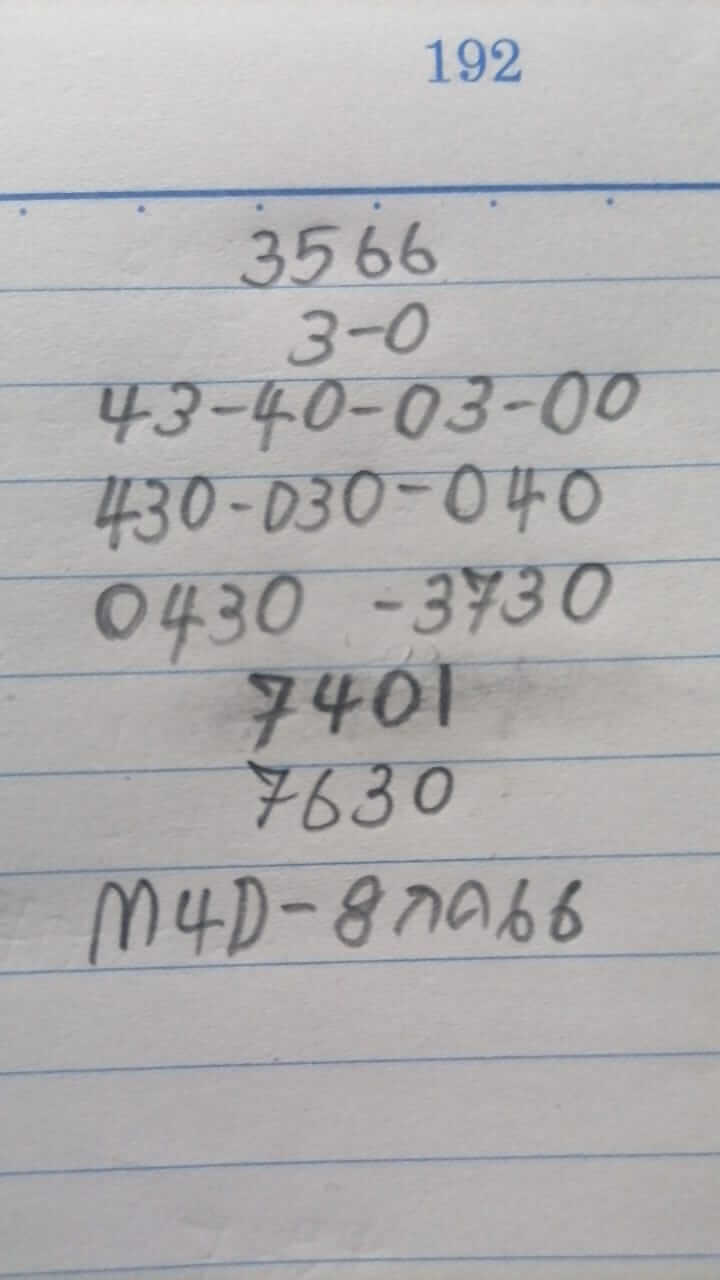 192
3566
3-0
43-40-03-00
430-030-040
0430 -3730
7401
7630
M4D-8กค66